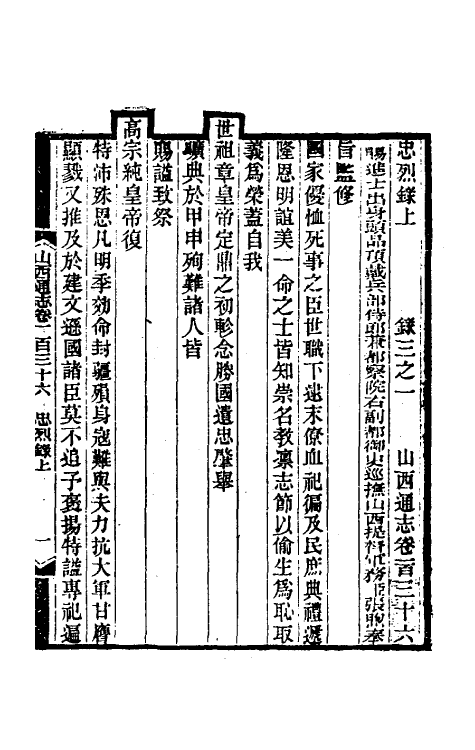 忠烈錄上 錄三之一 山西通志卷一百三十六
賜進士出身頭品頂戴兵部侍郎兼都察院右副都御史巡撫山西提督軍務臣張煦奉
旨監修
國家優恤死事之臣世職下逮末僚血祀徧及民庶典禮遝
隆恩明誼美一命之士皆知崇名教凜志節以偷生為恥取
義為榮蓋自我
世祖章皇帝定鼎之初軫念勝國遺忠肇舉
曠典於甲申殉難諸人皆
賜諡致祭
高宗純皇帝復
特沛殊恩凡明季効命封疆殞身寇難與夫力抗大軍甘膺
顯戮又推及於建文遜國諸臣莫不追予褒揚特諡專祀遍
山西通志卷一百三十六 忠烈錄上 一